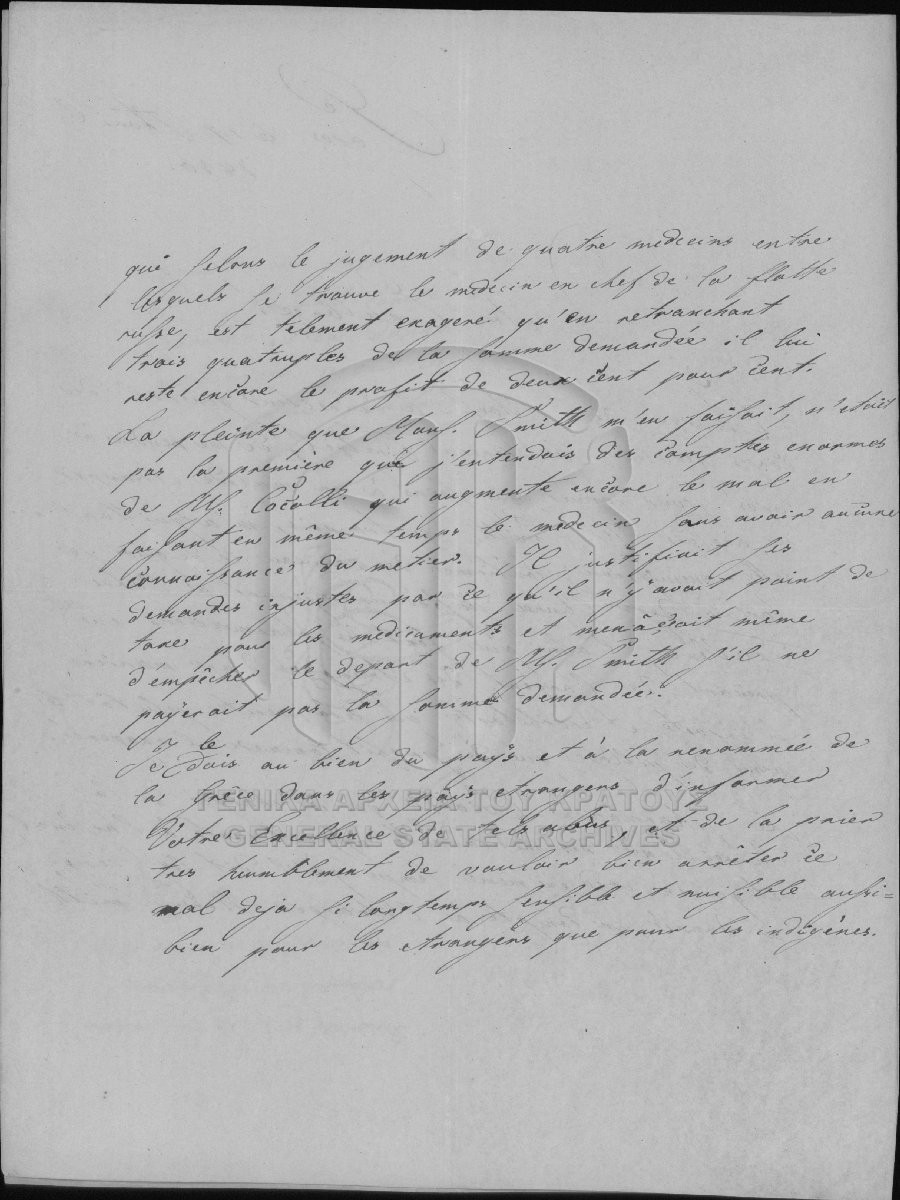 qué selons le jugement de quatre medecins entre
lesquels se trouve le medecin en chef de la flotte
russe, est telement exageré qu'en retranchant
trois quatruples de la somme demandée il lui
reste encore le profit de deux cent pour cent.
La pleinte que Mons. Smith m'en faisait, n'etait
pas la première que j'entendais des comptes enormes
de Mr. Cocolli qui augmente encore le mal en
faisant en même temps le medecin sans avoir aucune
connaissance du metier. Il justifiait ses
demandes injustes par ce qu'il n'y avait point de
taxe pour les medicaments et menâçait même
d'empêcher le depart de Mr. Smith s'il ne
payerait pas la somme demandée.
Je le dois au bien du pays et à la renommée de
la Grèce dans les pays étrangers d'informer
Votre Excellence de tels abus, et de la prier
tres humblement de vouloir bien arrêter ce
mal deja si longtemps sensible et nuisible aussi=
bien pour les etrangèrs que pour les indigènes.
ΓΕΝΙΚΑ ΑΡΧΕΙΑ ΤΟΥ ΚΡΑΤΟΥΣ
GENERAL STATE ARCHIVES